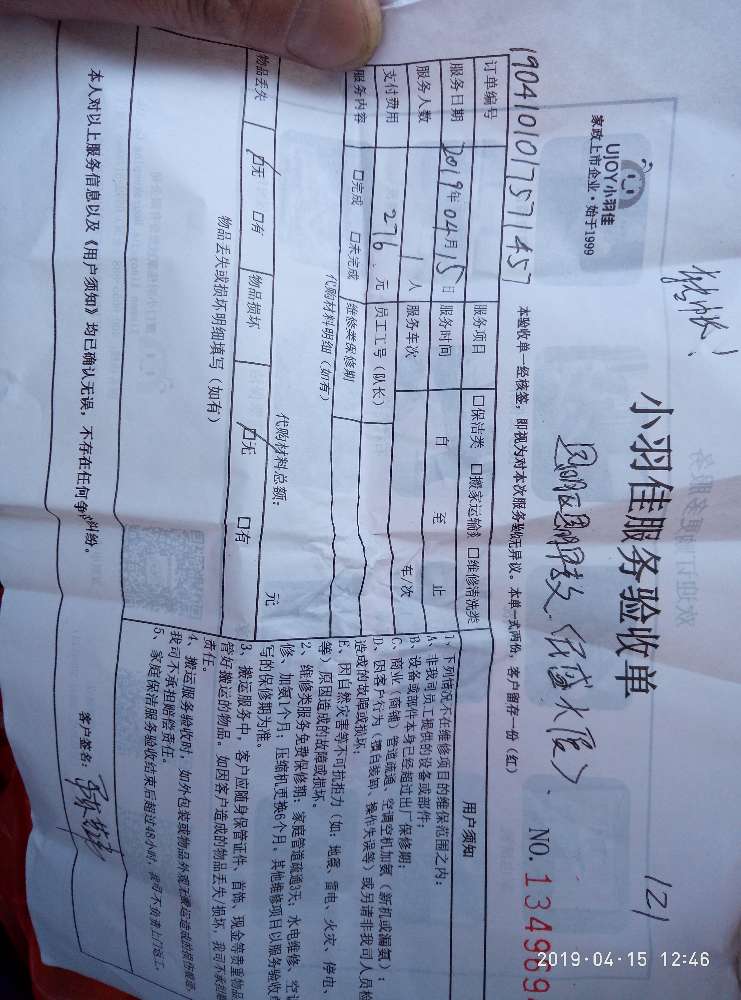 转帐!
121
UJOY小羽佳
家政上市企业·始于1999
小羽佳服务验收单
NO.134989
本验收单一经核签，即视为对本次服务验收无异议。本单一式两份，客户留存一份（红）
订单编号
1904101017571457
服务项目 口保洁类 口搬家运输类 口维修清洗类
服务日期 2019年04月15日 服务时间 自 至 止
服务人数 1人 服务车次 车/次
支付费用 276元 员工工号（队长）
服务内容 口完成 口未完成 维修类保修期
代购材料明细（如有）
代购材料总额： 元
物品丢失 口无 口有 物品损坏 口无 口有
物品丢失或损坏明细填写（如有）
用户须知
1、下列情况不在维修项目的维保范围之内：
A、非我司员工提供的设备或部件；
B、设备或部件本身已经超过出厂保修期；
C、商业（商铺）管道疏通、空调空机加氨（新机或漏氨）；
D、因客户行为（擅自拆卸、操作失误等）或另请非我司人员检
造成的故障或损坏；
E、因自然灾害等不可抗拒力（如：地震、雷电、火灾、停电、
等）原因造成的故障或损坏。
2、维修类服务免费保修期：家庭管道疏通3天，水电维修、空调
修、加氨1个月，压缩机更换6个月，其他维修项目以服务验收
写的保修期为准。
3、搬运服务中，客户应随身保管证件、首饰、现金等贵重物品
管好搬运的物品。如因客户造成的物品丢失/损坏，我司不承担
责任。
4、搬运服务验收时，如外包装或物品外观无搬运造成的损伤痕迹，
我司不承担赔偿责任。
5、家庭保洁服务验收结束后超过48小时，我司不负责上门返工。
本人对以上服务信息以及《用户须知》均已确认无误，不存在任何争议纠纷。
客户签名：
2019-04-15 12:46